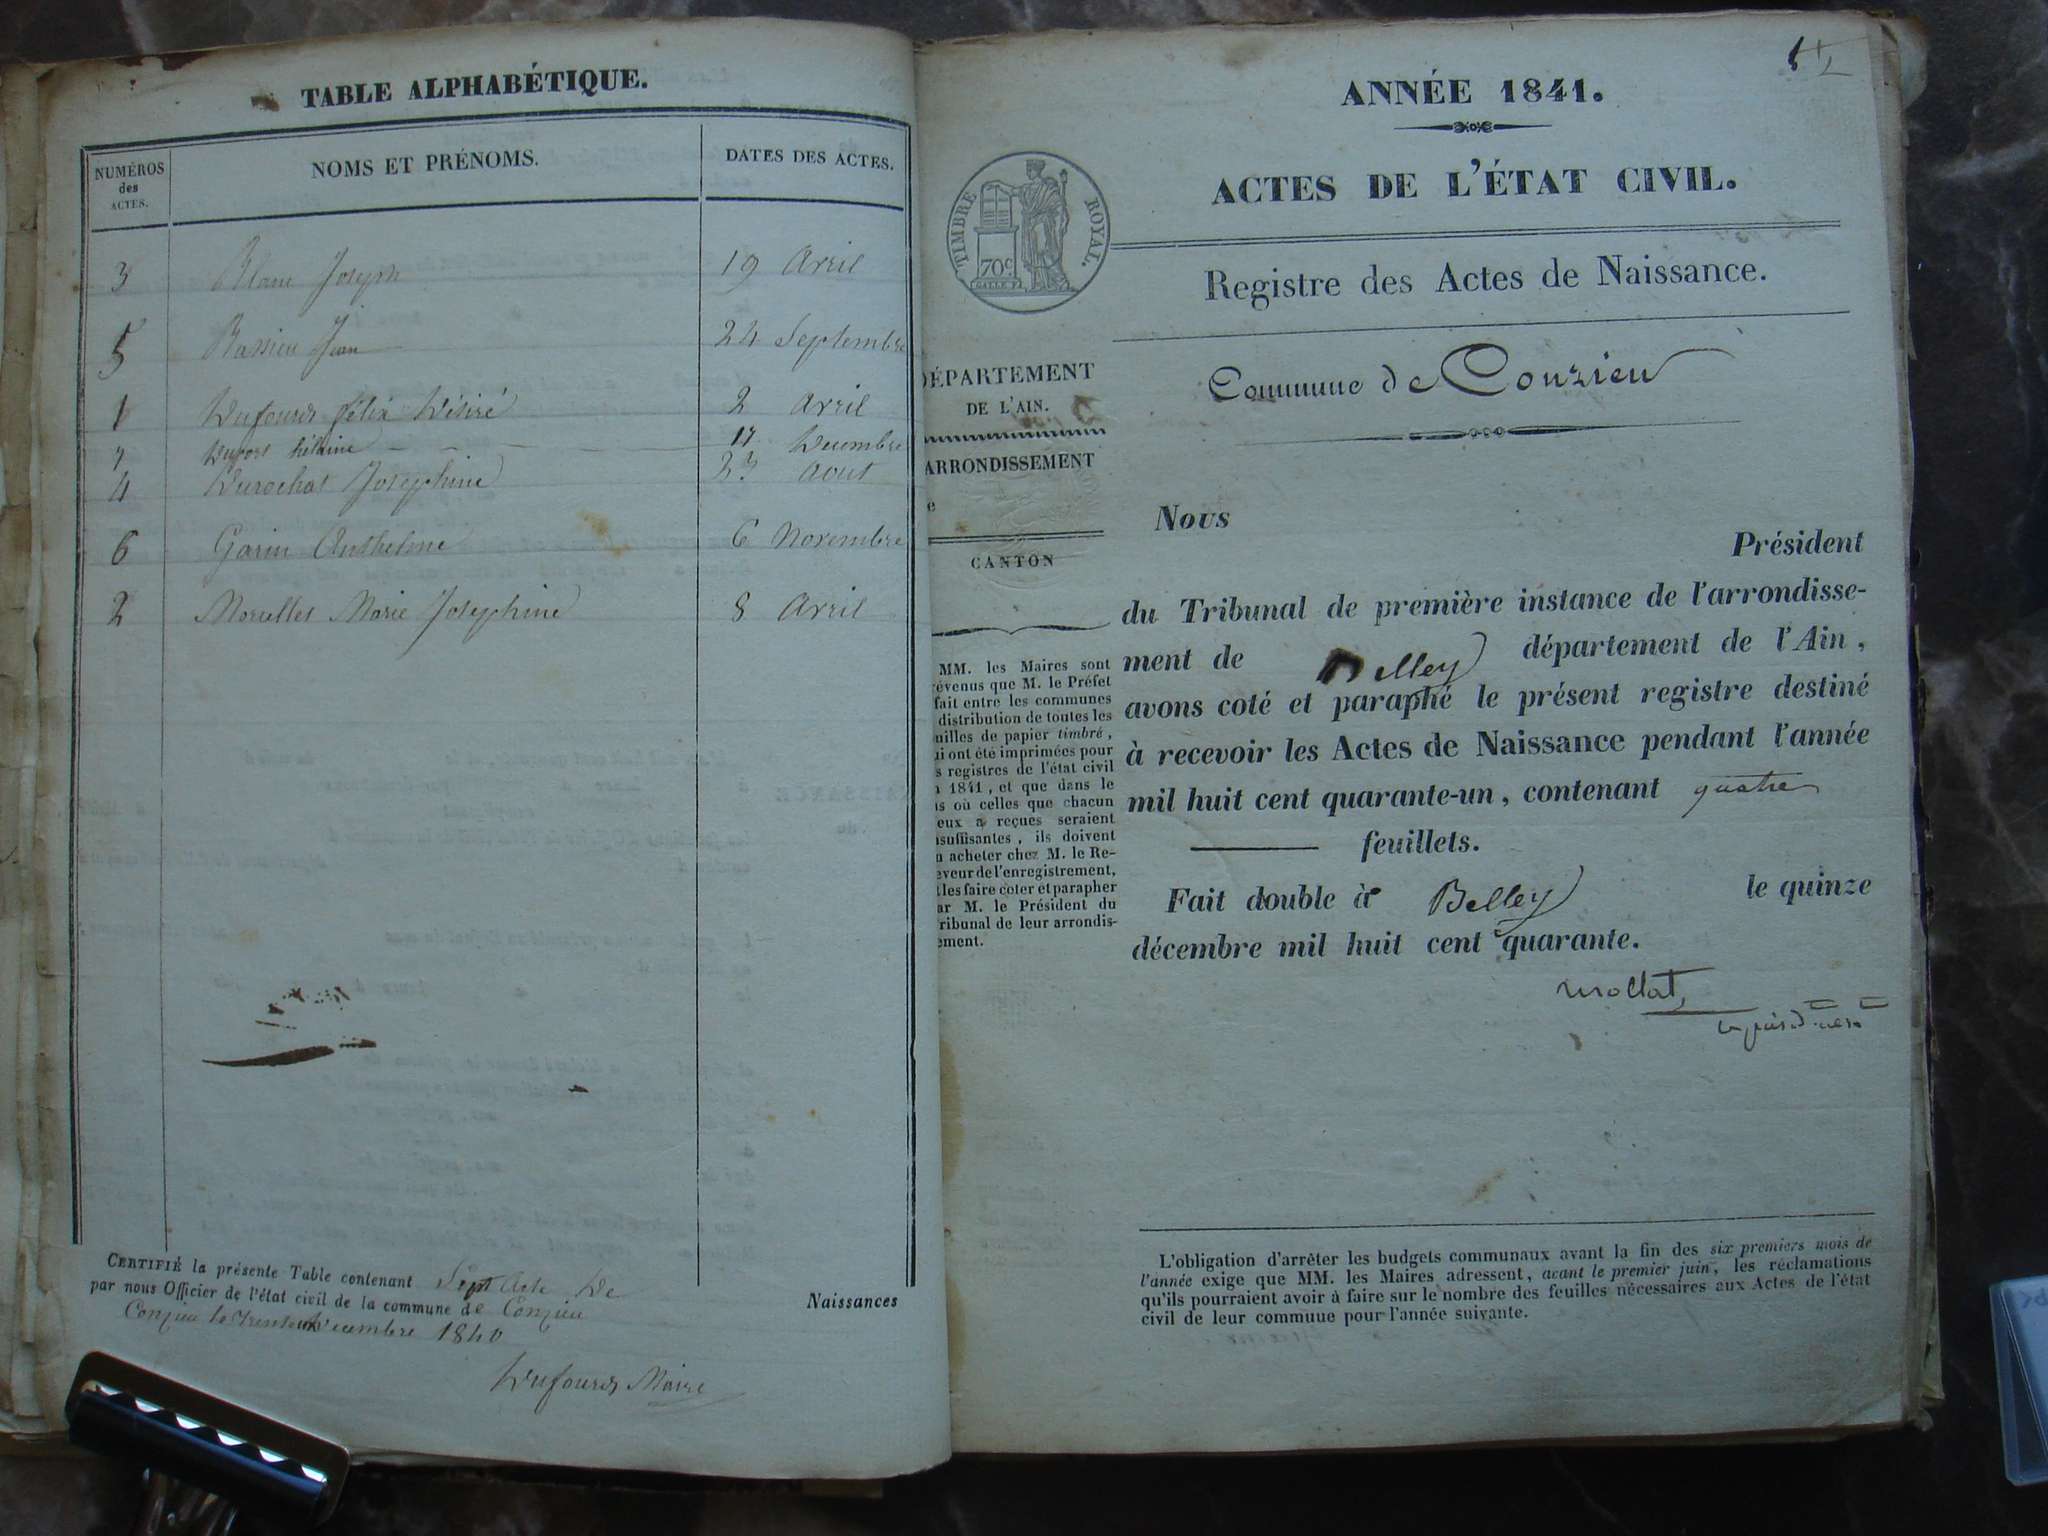 TABLE ALPHABÉTIQUE.
NUMÉROS
des
ACTES.
NOMS ET PRÉNOMS.
DATES DES ACTES.
3 Blanc Joseph 19 Avril
5 Jean 24 Septembre
1 Dufourd félix Désiré 2 Avril
7 Duport 17 Decembre
4 Durochat Josephine 23 Aout
6 Garin Anthelme 6 Novembre
2 Morcellet Marie Josephine 8 Avril
CERTIFIÉ la présente Table contenant Sept Acte De Naissances
par nous Officier de l'état civil de la commune de Conzieu
Conzieu le trente un Decembre 1840
Dufourd Maire
ANNÉE 1841.
ACTES DE L'ÉTAT CIVIL.
TIMBRE ROYAL.
70c
Registre des Actes de Naissance.
Commune de Conzieu
DÉPARTEMENT
DE L'AIN.
ARRONDISSEMENT
e
CANTON
MM. les Maires sont
évenus que M. le Préfet
fait entre les communes
distribution de toutes les
uilles de papier timbré,
ui ont été imprimées pour
s registres de l'état civil
1841, et que dans le
as où celles que chacun
eux a reçues seraient
nsuffisantes, ils doivent
n acheter chez M. le Re-
eveur de l'enregistrement,
t les faire coter et parapher
ar M. le Président du
ribunal de leur arrondis-
ement.
Nous
Président
du Tribunal de première instance de l'arrondisse-
ment de Belley département de l'Ain,
avons coté et paraphé le présent registre destiné
à recevoir les Actes de Naissance pendant l'année
mil huit cent quarante-un, contenant quatre
feuillets.
Fait double à Belley le quinze
décembre mil huit cent quarante.
L'obligation d'arrêter les budgets communaux avant la fin des six premiers mois de
l'année exige que MM. les Maires adressent, avant le premier juin, les réclamations
qu'ils pourraient avoir à faire sur le nombre des feuilles nécessaires aux Actes de l'état
civil de leur commune pour l'année suivante.